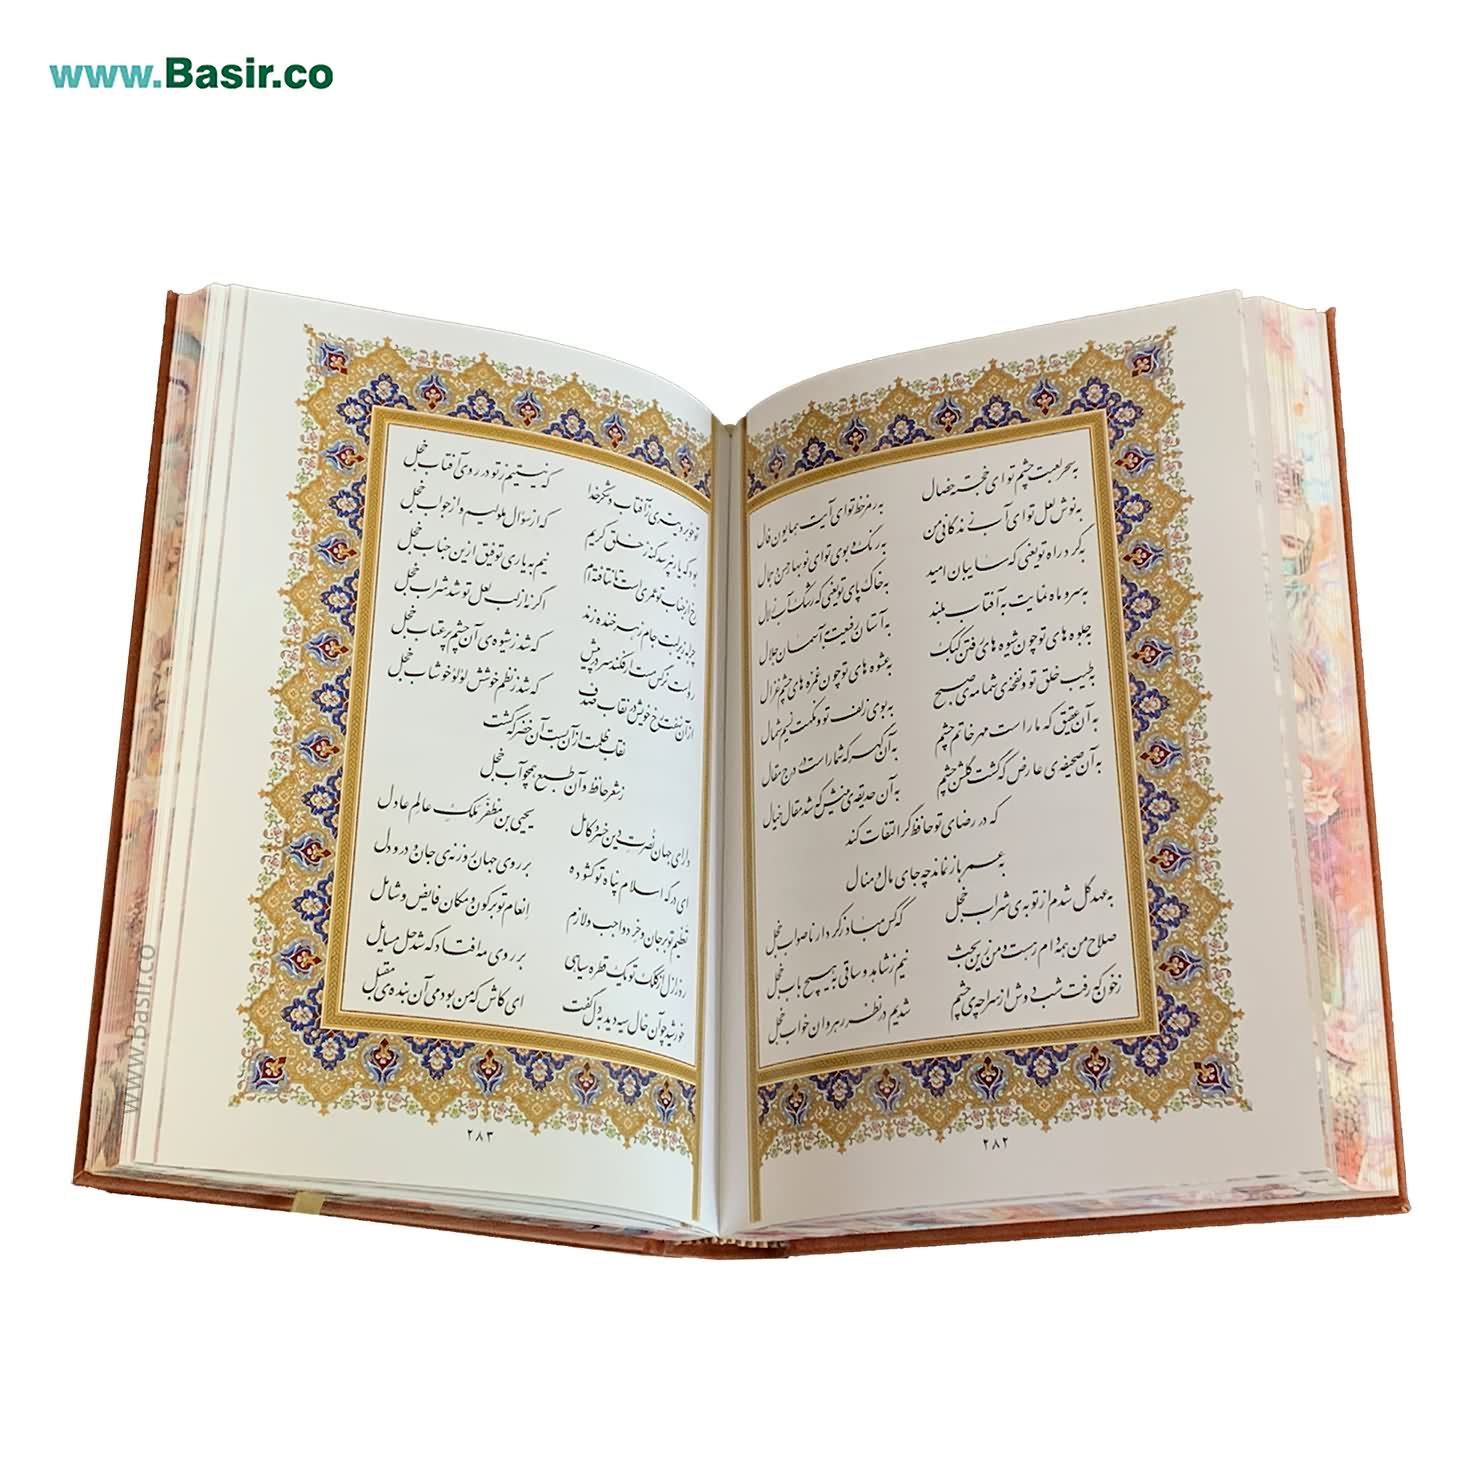 www.Basir.co
به سحر لعبت چشم تو ای خجسته خصال به رمز خط تو ای آیت همایون فال
به نوش لعل تو ای آب زندگانی من به رنگ و بوی تو ای نوبهار حسن و جمال
به گرد راه تو یعنی که سایبان امید به خاک پای تو یعنی که رشک آب زلال
به سرو ماه نمایت به آفتاب بلند به آستان رفیعت به آسمان جلال
به جلوه های تو چون شیوه های رفتن کبک به عشوه های تو چون غمزه های چشم غزال
به طیب خلق تو و نفخه ی شمامه ی صبح به بوی زلف تو و نکهت نسیم شمال
به آن عقیق که ما راست مهر خاتم چشم به آن گهر که شما راست درج مقال
به آن صحیفه ی عارض که گشت گلشن چشم به آن حدیقه ی بینش که شد مقال خیال
که در رضای تو حافظ گر التفات کند
به عمر باز نماند چه جای مال و منال
به عهد گل شدم از توبه ی شراب خجل که کس مباد ز کردار ناصواب خجل
صلاح من همه دام رهست و من زین بحث نیم ز شاهد و ساقی به هیچ باب خجل
ز خون که رفت شب دوش از سراچه ی چشم شدیم در نظر رهروان خواب خجل
۲۸۲
تو خوبروی تری ز آفتاب و شکر خدا که نیستیم ز تو در روی آفتاب خجل
بود که یار نپرسد گنه ز خلق کریم که از سؤال ملولیم و از جواب خجل
رخ از جناب تو عمری است تا نتافته ام نیم به یاری توفیق ازین جناب خجل
چرا به زیر لب جام زهر خنده زند اگر نه از لب لعل تو شد شراب خجل
رواست نرگس مست ار فکند سر در پیش که شد ز شیوه ی آن چشم پر عتاب خجل
از آن نهفت رخ خویش در نقاب صدف که شد ز نظم خوشش لؤلؤ خوشاب خجل
نقاب ظلمت از آن بست آن خضر که گشت
ز شعر حافظ و آن طبع همچو آب خجل
دارای جهان نصرت دین خسرو کامل یحیی بن مظفر ملک عالم عادل
ای درگه اسلام پناه تو گشوده بر روی جهان روزنه ی جان و در دل
تعظیم تو بر جان و خرد واجب و لازم انعام تو بر کون و مکان فایض و شامل
روز ازل از کلک تو یک قطره سیاهی بر روی مه افتاد که شد حل مسایل
خورشید چو آن خال سیه دید به دل گفت ای کاش که من بودمی آن بنده ی مقبل
۲۸۳
www.Basir.co